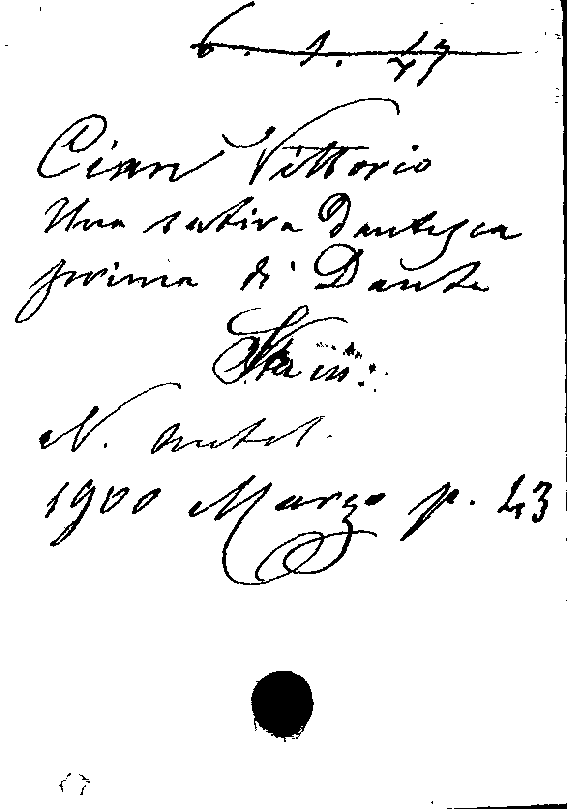 6. 1. 17
Cian Vittorio
Una satira dantesca
prima di Dante
sta in:
N. Antol.
1900 Marzo p. 43